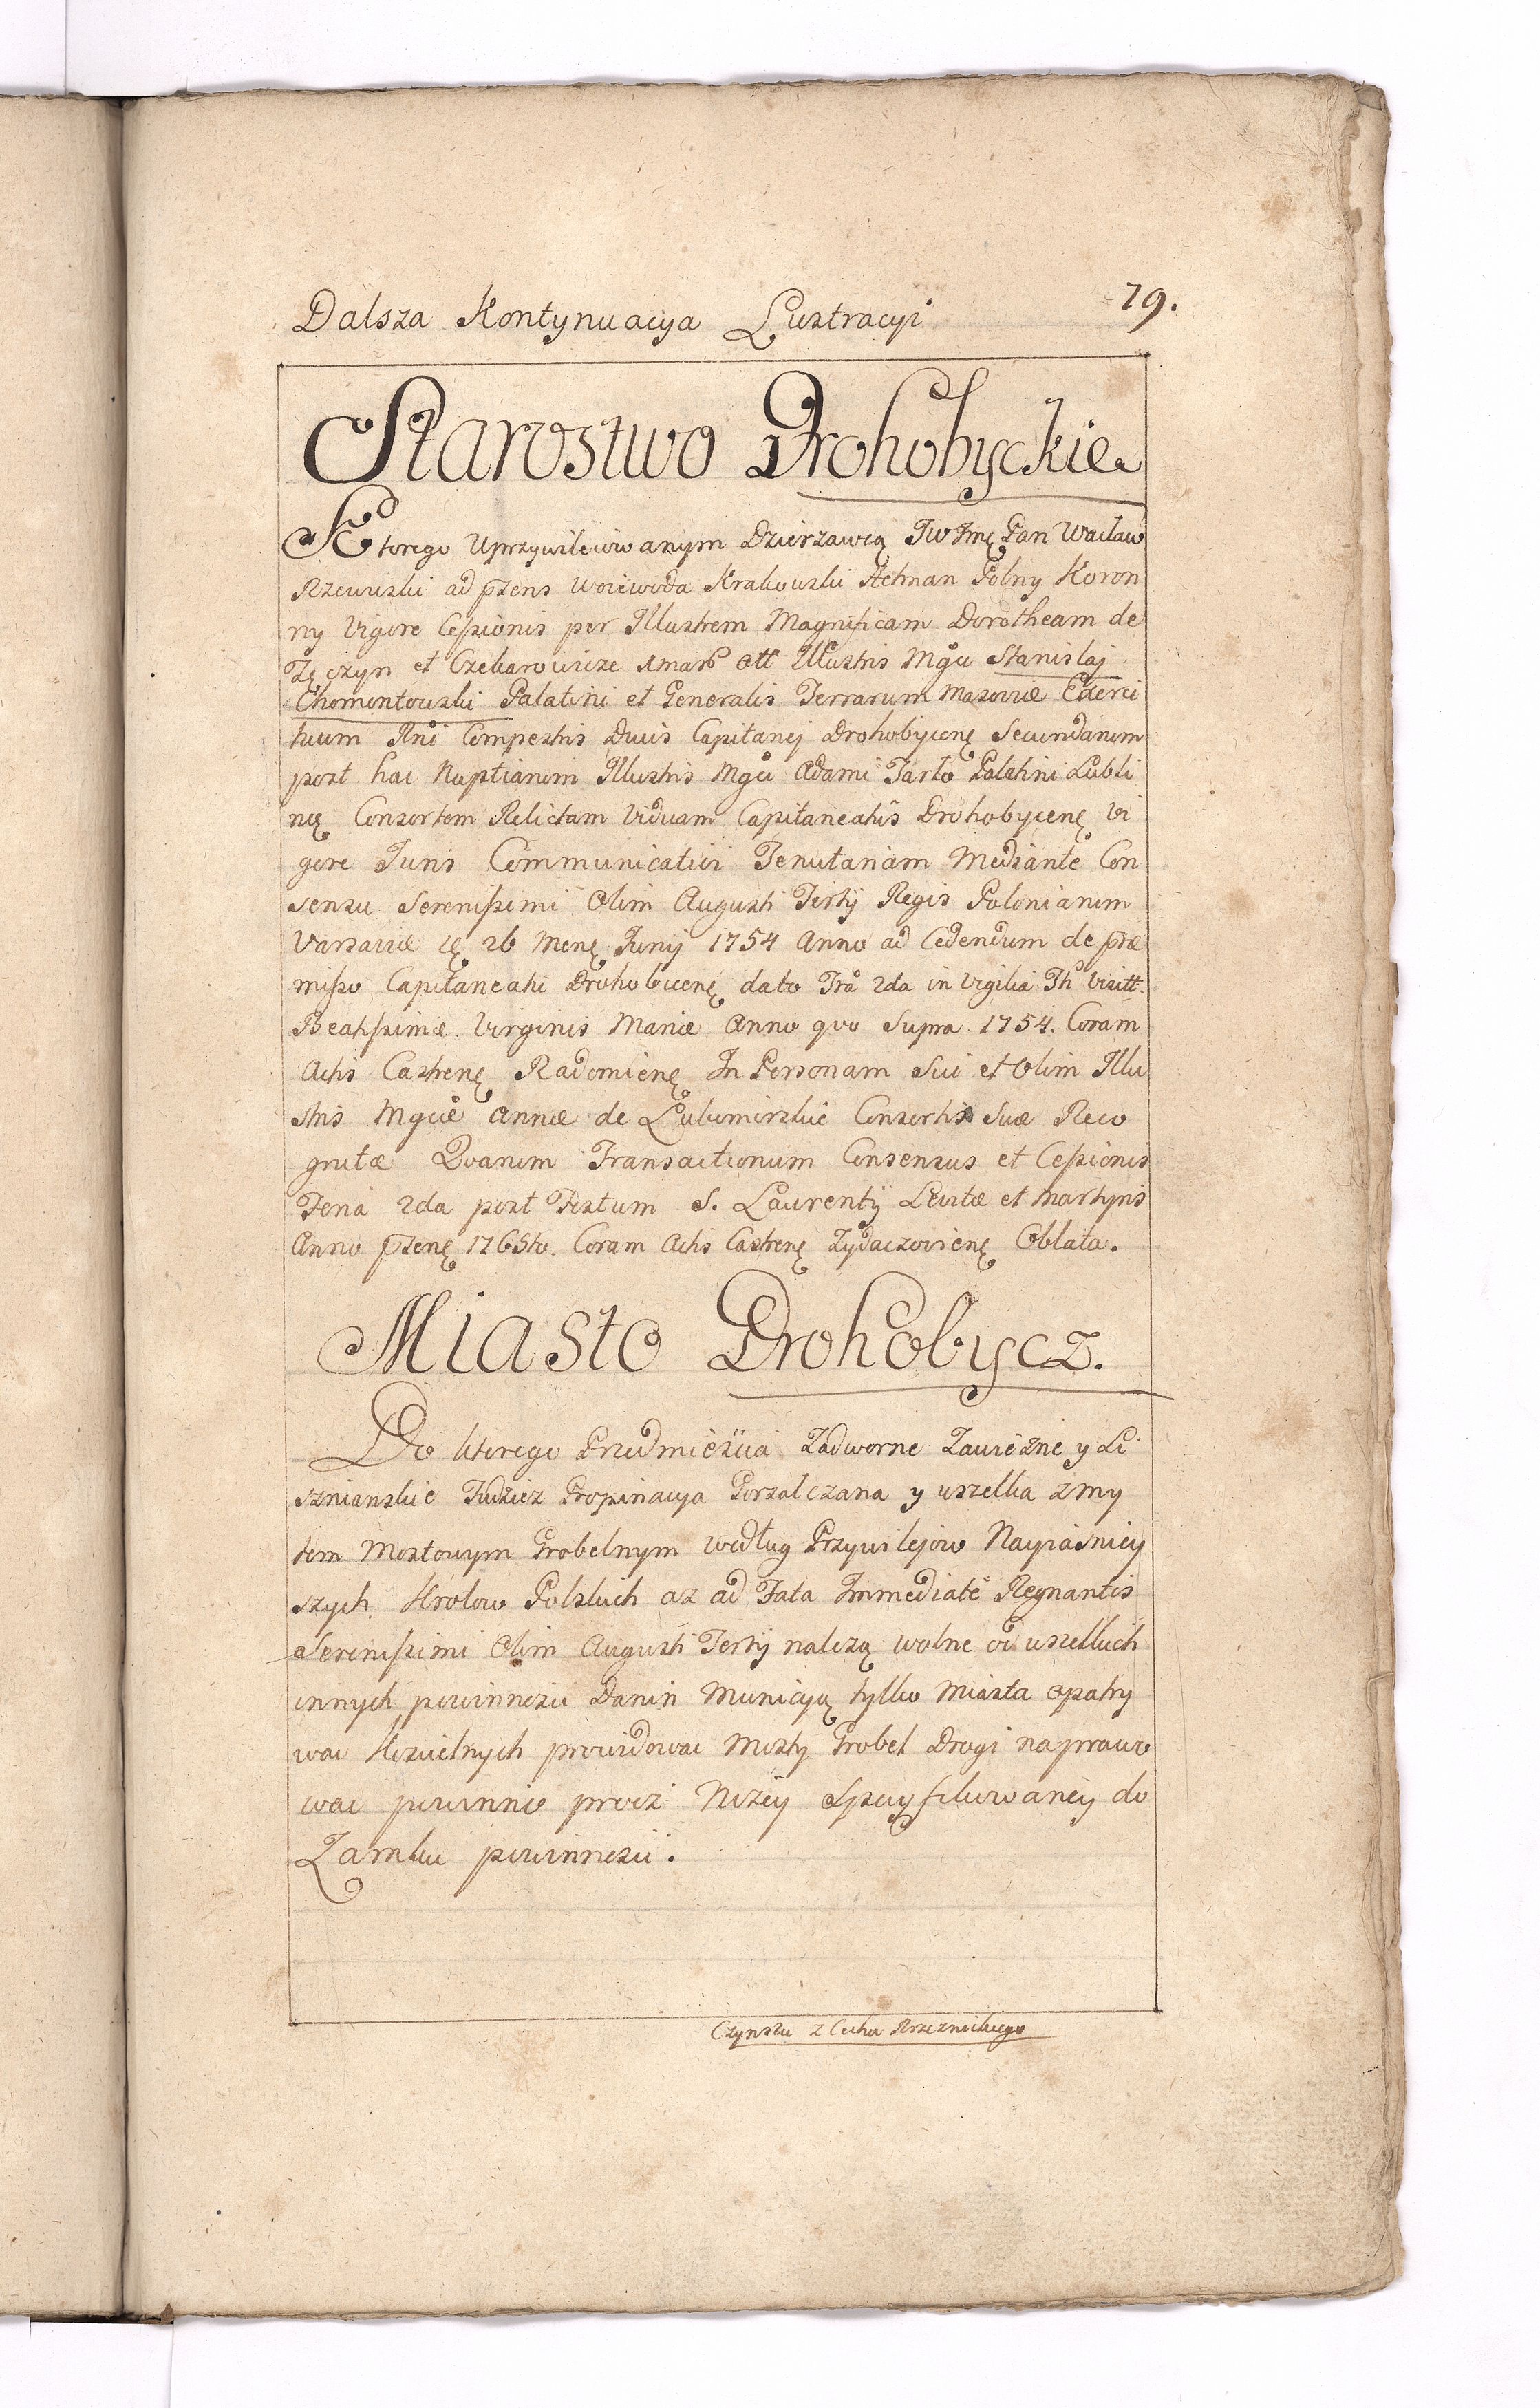 Dalsza Kontynuacya Lustracyi 79.
Starostwo Drohobyckie
Ktorego Uprzywileiowanym Dzierzawcą JW Jmę Pan Wacław
Rzewuski ad pżens Woiewoda Krakowski Hetman Polny Koron
ny Vigore Cessionis per Illustrem Magnificam Dorotheam de
Tęczyn et Czekarowicze Imart Illustris Mgci Stanislaj
Chomentowski Palatini et Generalis Terrarum Masoviæ Exerci
tuum Rni Campestris Ducis Capitanej Drohobycenę Secundarum
post hac Nuptiarum Illustris Mgci Adami Tarło Palatini Lubli
nę Consortem Relictam Viduam Capitaneatus Drohobycenę Vi
gore Juris Communicativi Tenutariam Mediante Con
sensu Serenissimi Olim Augusti Tertij Regis Poloniarum
Varsaviæ 26 Menę Junij 1754 Anno ad Cedendum de præ
misso Capitaneatu Drohobicenę dato Fra 2da in Vigilia Visitt.
Beatissimæ Virginis Mariæ Anno quo Supra 1754. Coram
Actis Castrenę Radomienę In Personam Sui et Olim Illu
stris Mgcæ Annæ de Lubomirskie Consortis Suæ Reco
gnitæ Quarum Transactionum Consensus et Cessionis
Feria 2da post Festum S. Laurentij Levitæ et Martyris
Anno pżenę 1765to. Coram Actis Castrenę Zydaczovienę Oblata.
Miasto Drohobycz.
Do ktorego Przedmiescia Zadworne Zawiezne y Li
sznianskie Tudziez Propinacya Gorzałczana y wszelka z my
tem Mostowym Grobelnym według Przywilejow Nayiasniey
szych Krolow Polskich az ad Fata Immediate Regnantis
Serenissimi Olim Augusti Tertij nalezą wolne od wszelkich
innych powinnosci Danin Municyą tylko Miasta opatry
wac Koscielnych prowidowac Mosty Grobel Drogi naprawo
wac powinno procz Nizey Spucyfikowaney do
Zamku powinnosci.
Czynszu z Cechu Rzeznickiego